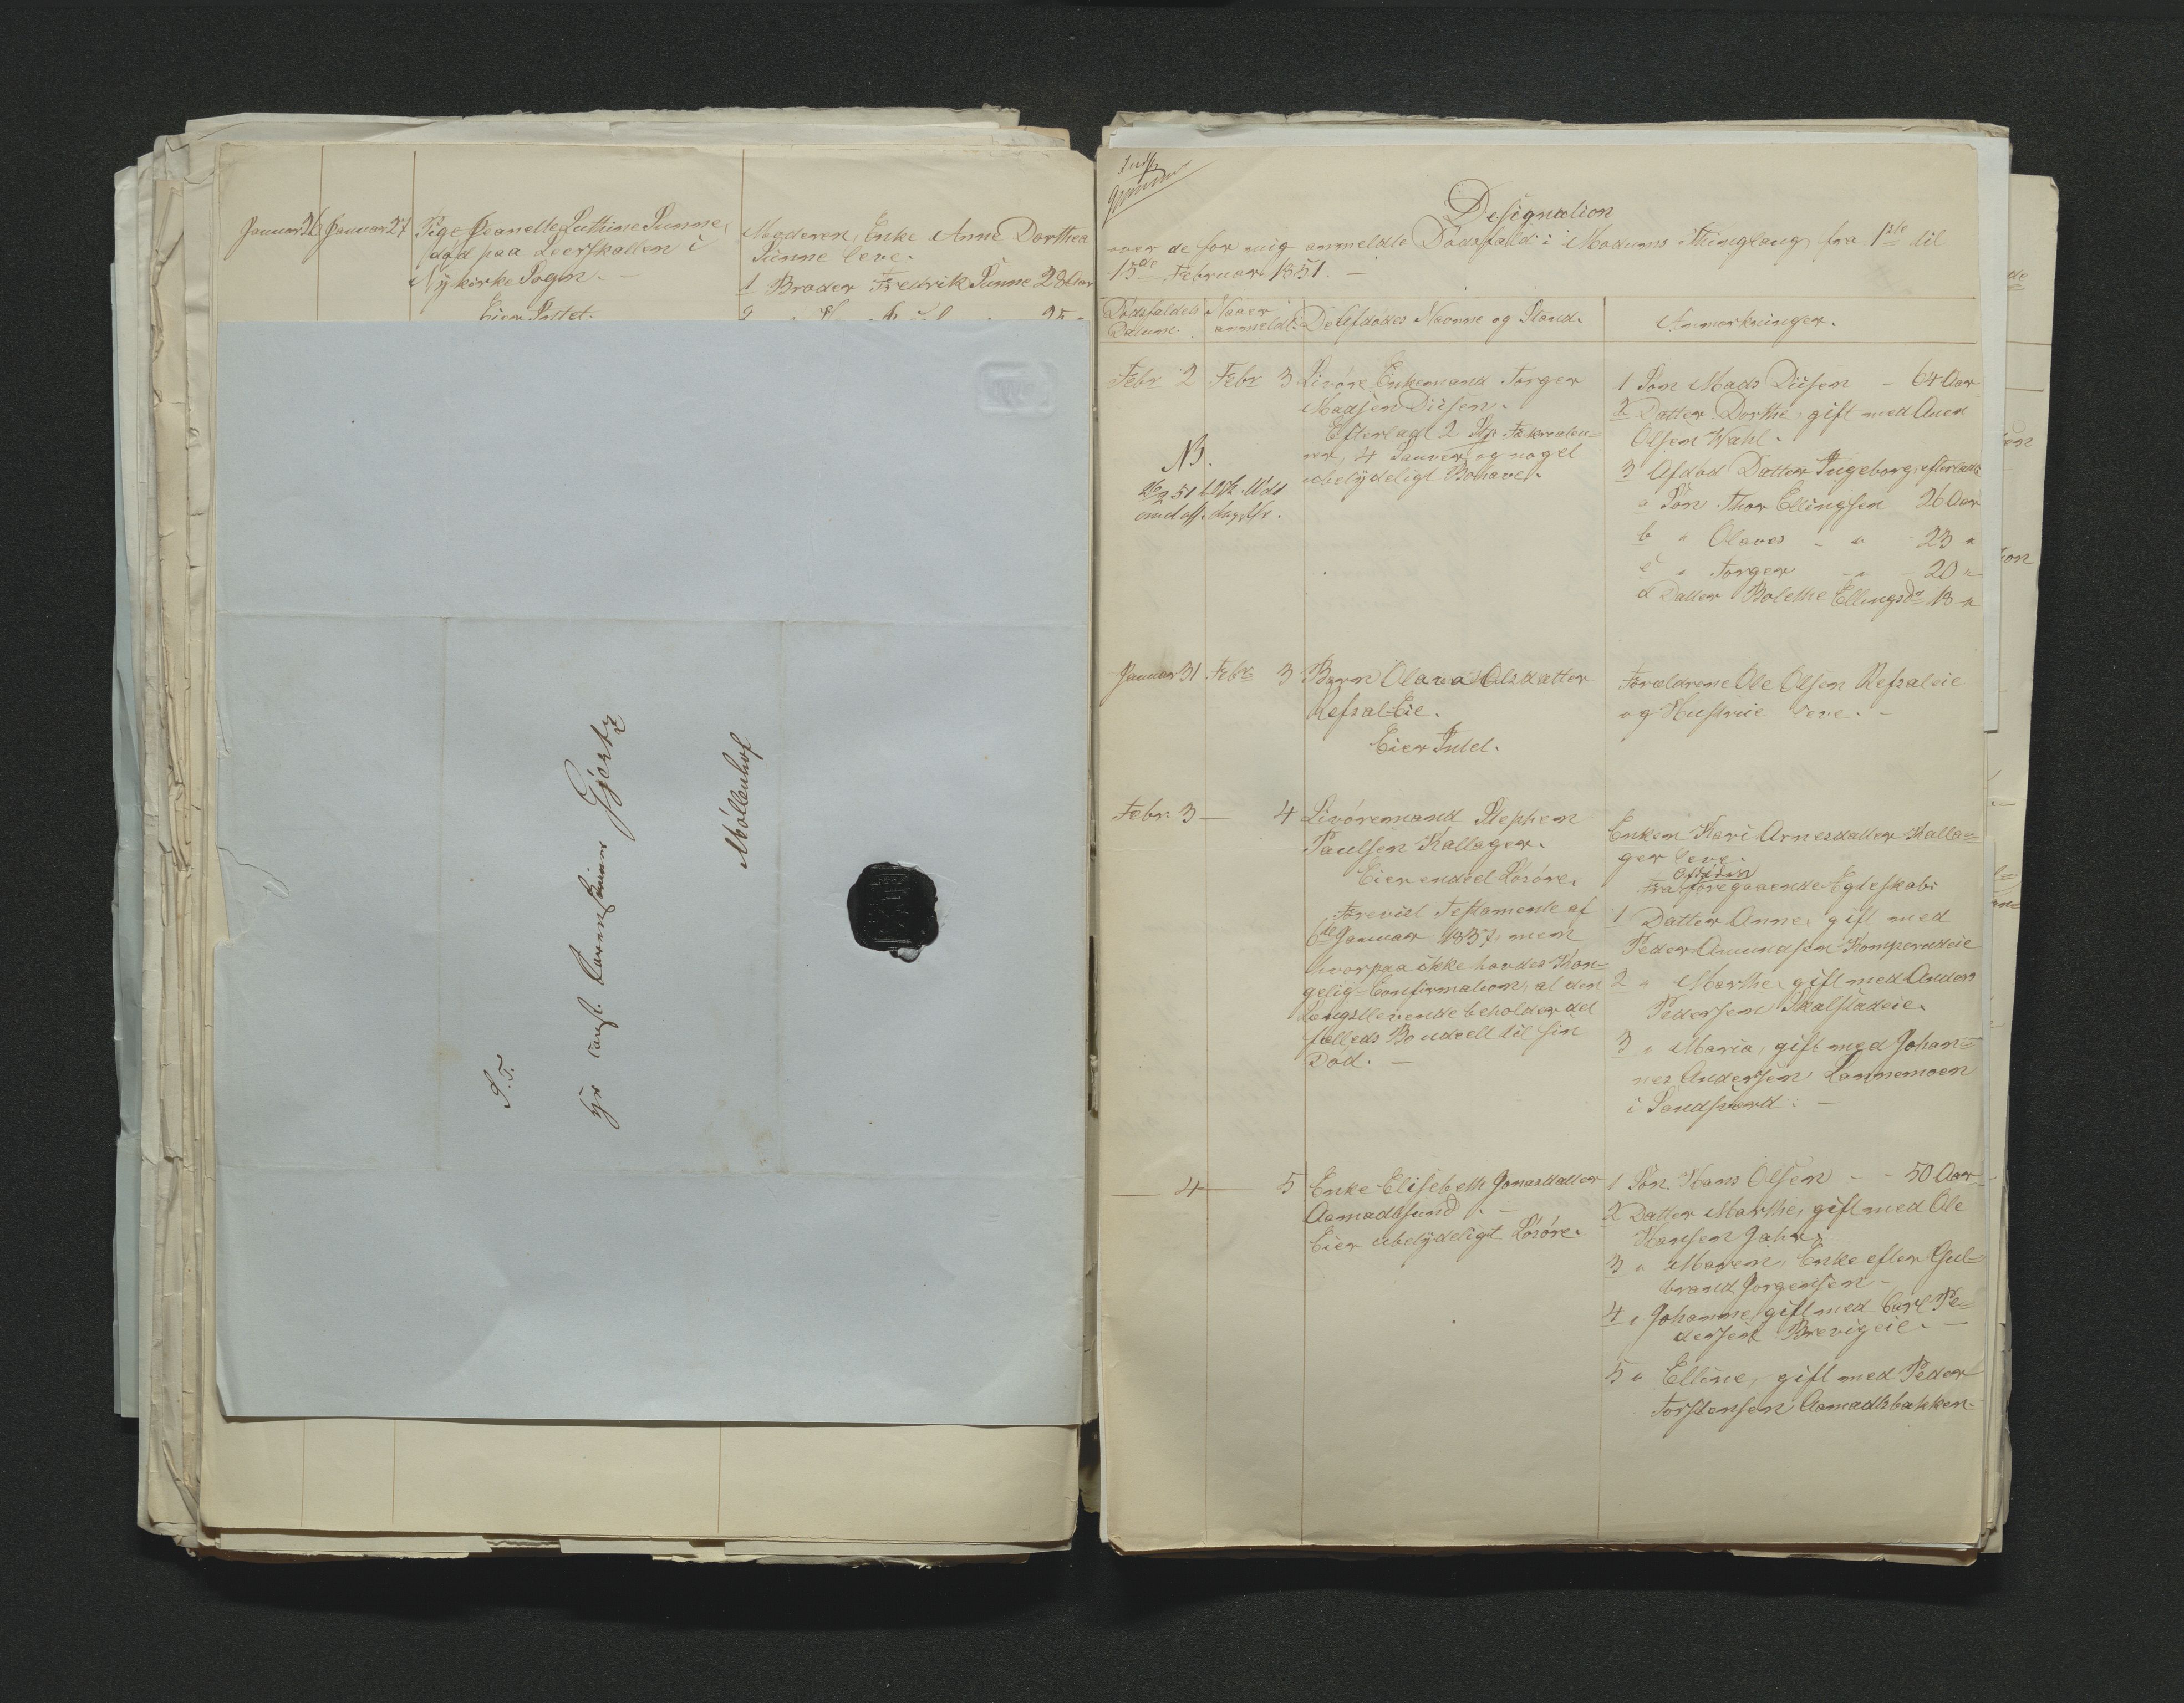 Januar 26 Januar 27 Pige Jeanette Luthine Sunne,
død paa Sverskallen i
Nykirke Sogn. –
Eier Intet.
Moderen, Enke Anne Dorthea
Sunne leve.
1 Broder Fredrik Sunne 28 Aar
S. T.
Hr const. Gjertz
Møllenhof
Designation
over de for mig anmeldte Dødsfald i Modums Thinglaug fra 1ste til
15de Februar 1851. –
Dødsfaldets Datum.
Naaer anmeldt.
De Afdødes Navne og Stand.
Anmærkninger.
Febr 2 Febr 3 Livøre Enkemand Torger
Madsen Diisen.
Efterlod 2 Stk Fækreatu=
rer, 4 Sauer og noget
ubetydeligt Bohave.
NB.
1 Søn Mads Diisen – 64 Aar
2 Datter Dorthe, gift med Aven
Olsen Wahl.
3 Afdød Datter Ingeborg, efterladt
a Søn Thor Ellingsen 26 Aar
b " Olaves – " 23 "
c " Torger – " – 20 "
d Datter Bolethe Ellingsdr 13 "
Januar 31 Febr 3 Barn Olava Olsdatter
Refsal-Eie.
Eier Intet.
Forældrene Ole Olsen Refsaleie
og Hustrue leve. –
Febr. 3 – 4 Livøremand Stephen
Paulsen Kallager.
Eier endeel Løsøre.
Foreviist Testamente af
6te Januar 1837, men
hvorpaa ikke havdes Kon=
gelig Confirmation, at den
Længstlevende beholder det
fælleds Bo udeelt til sin
Død. –
Enken Kari Arnesdatter Kalla=
ger leve.
Afdødes
Fra foregaaende Egteskab:
1 Datter Anne, gift med
Peder Amundsen Komperudeie
2 " Marthe, gift med Anders
Pedersen Skalstadeie.
3 " Maria, gift med Johan=
nes Andersen Lannemoen
i Sandsværd. –
– 4 – 5 Enke Elisebeth Jonasdatter
Aamodtsund. –
Eier ubetydeligt Løsøre.
1 Søn Hans Olsen – – 50 Aar
2 Datter Marthe, gift med Ole
Hansen Jahr.
3 " Maren, Enke efter Gul=
brand Jorgensen –
4 " Johanne, gift med Carl Pe=
dersen Brevigeie. –
5 " Elline, gift med Peder
Torstensen Aamodtbakken –